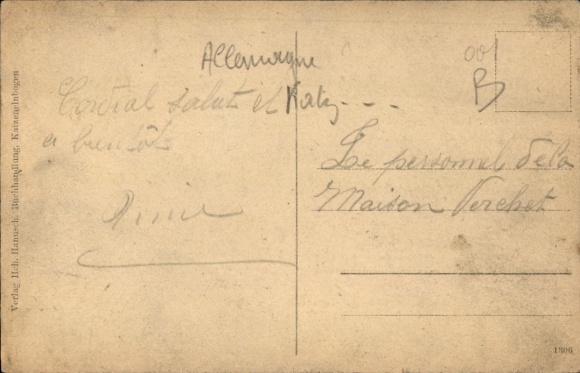 Allemagne
Katz...
001
B
Cordial salut et
a bientôt
Le personnel de la
Maison Perchet
Verlag Hch. Hanusch, Buchhandlung, Katzenelnbogen
1306